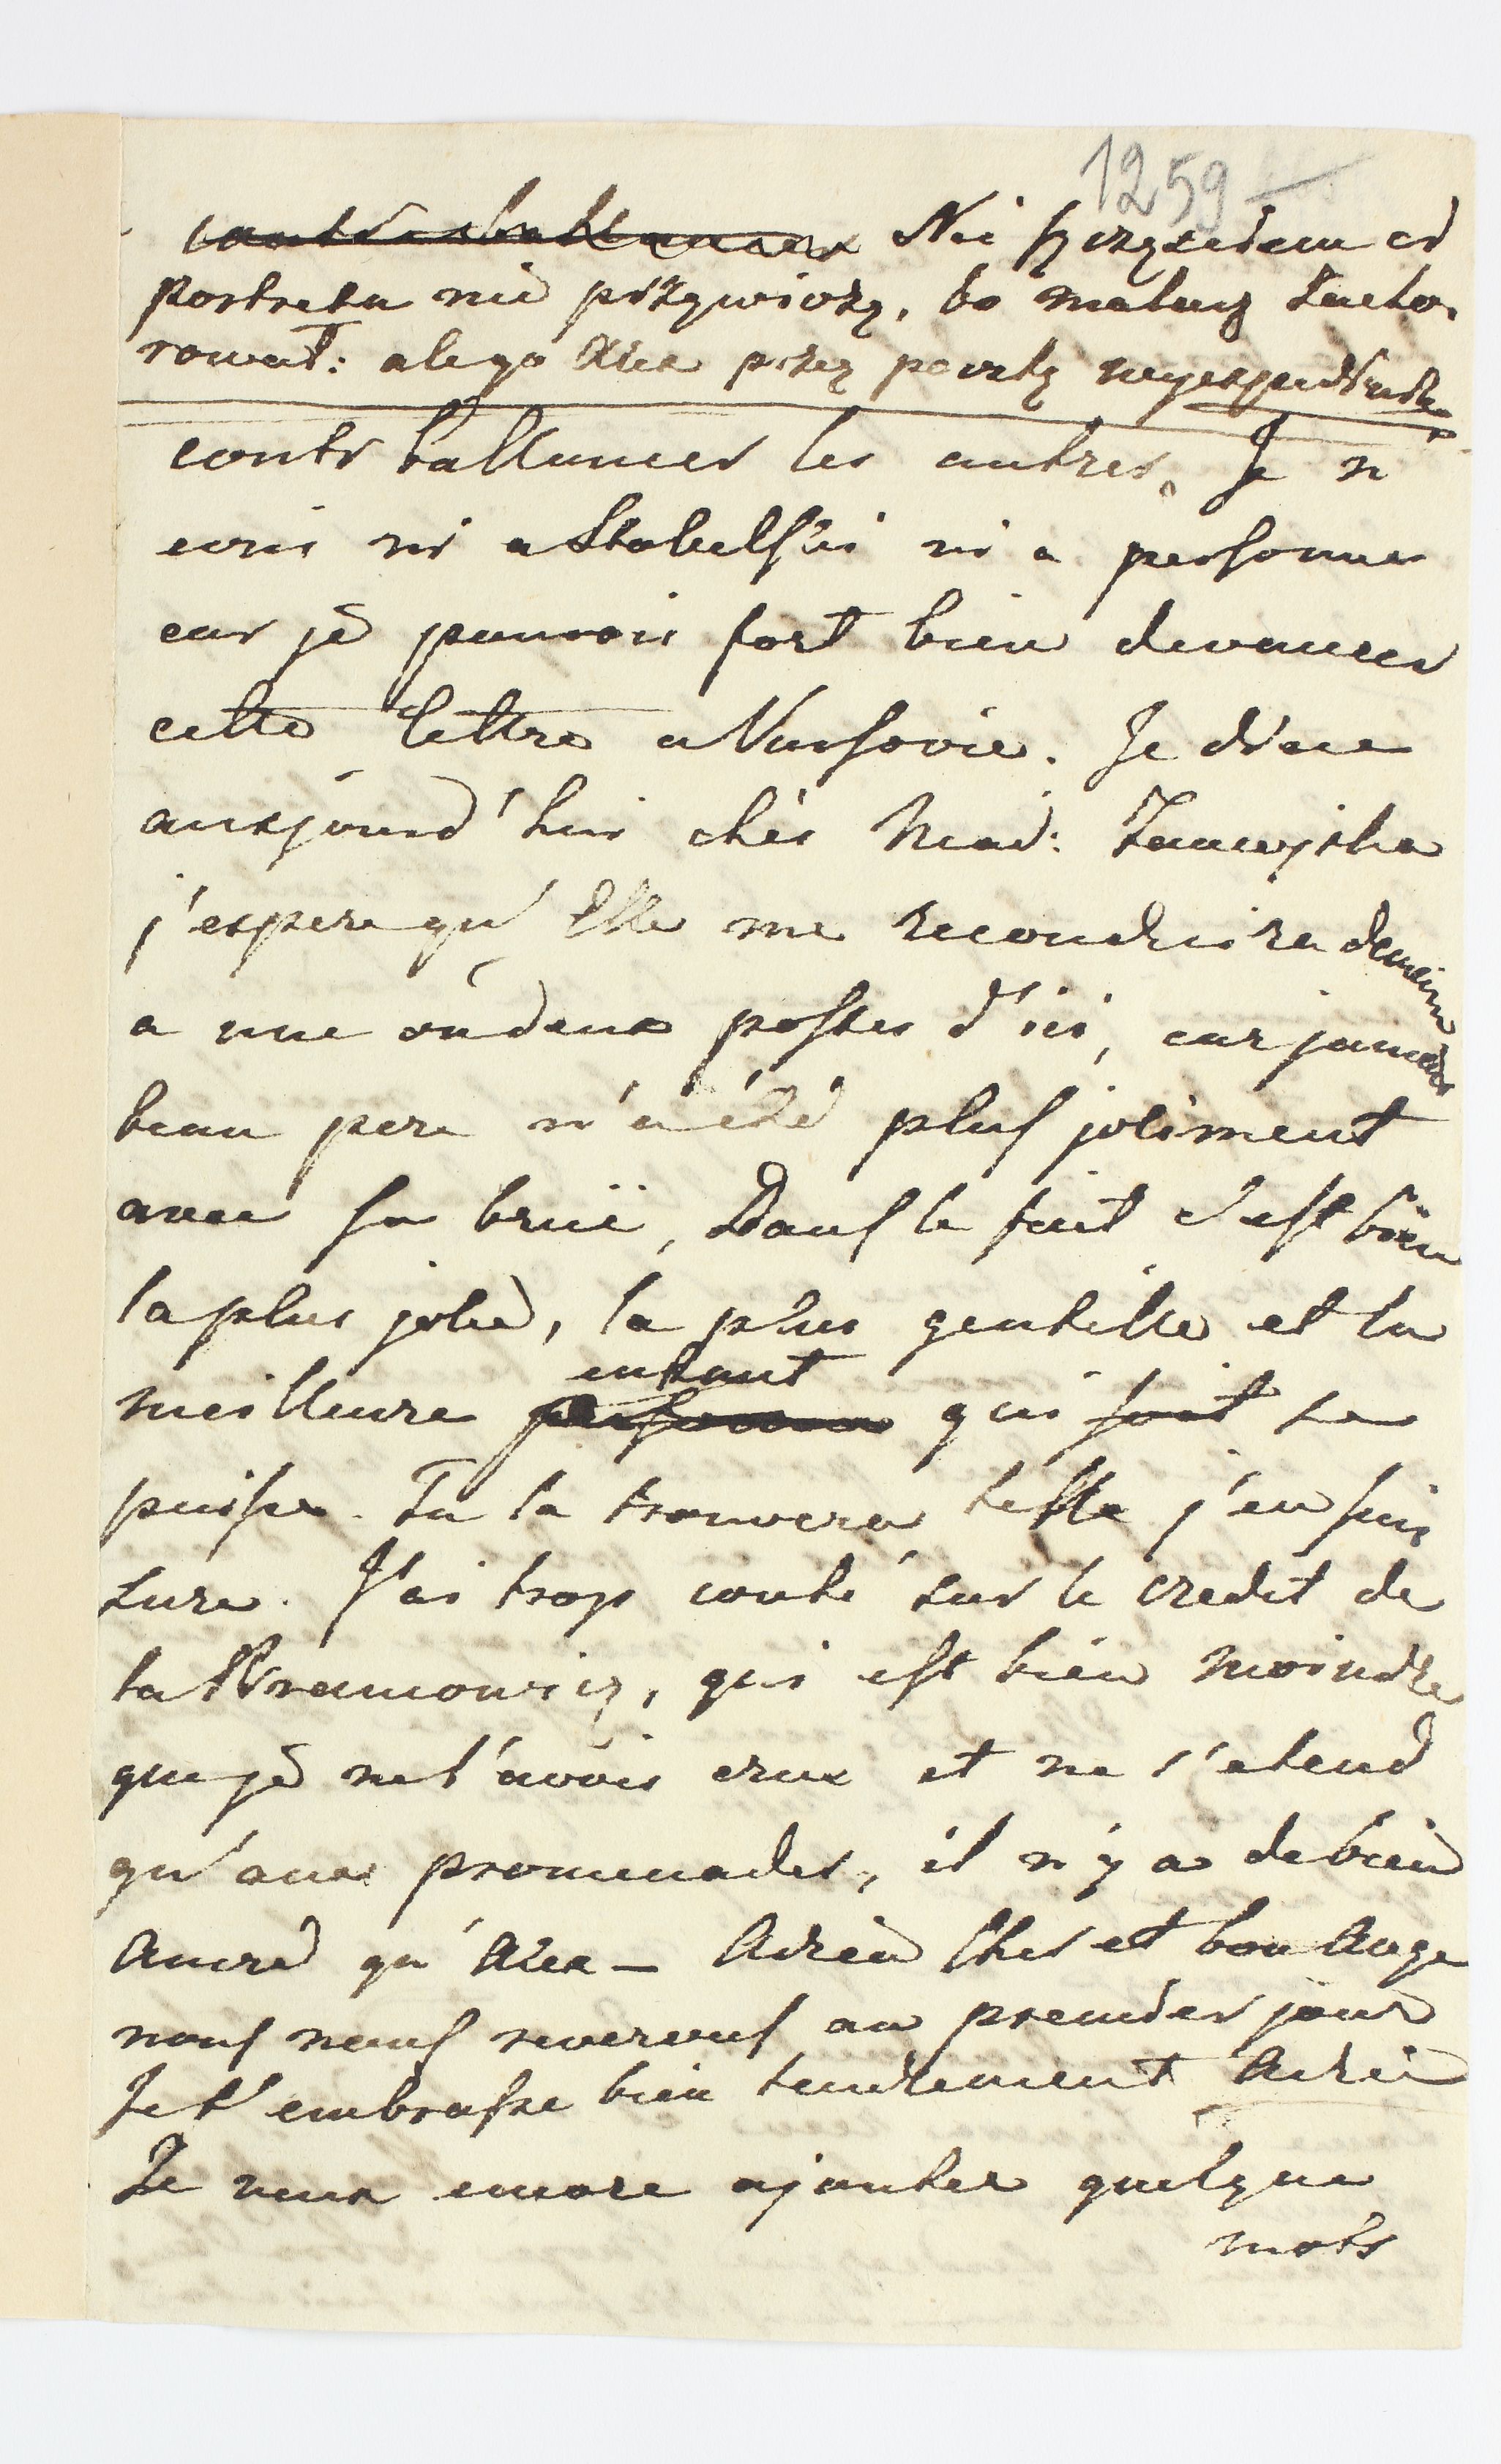 1259
contreballancer Nic
portretu nie przywiozę, bo malarz zacho.
rował: ale go Alex przez pocztę
contr ballancer les autres. Je n
ecris ni a Stabelski ni a personne
car je pourrois fort bien devancer
cette lettre a Varsovie. Je dine
auxjourd'hui chés Mad: Zamoyska
j'espere qu'Elle me reconduira demain
a une ou deux postes d'ici, car jamais
beau pere n'a été plus joliment
avec sa bruë, Dans le fait c'est bien
la plus jolie, la plus gentille et la
enfant
meilleure personne qui soit se
puisse. Tu la trouvera telle j'en suis
sure. J'ai trop conté sur le credit de
la Abramowicz, qui est bien moindre
que je ne l'avois crue et ne s'etend
qu'aux promenades, il n'y a de bien
Ancré qu'Alex - Adieu Cher et bon Ange
nous nous reverons au premier jour
Je t'embrasse bien tendrement Adieu
Je veux encore ajouter quelque
mots